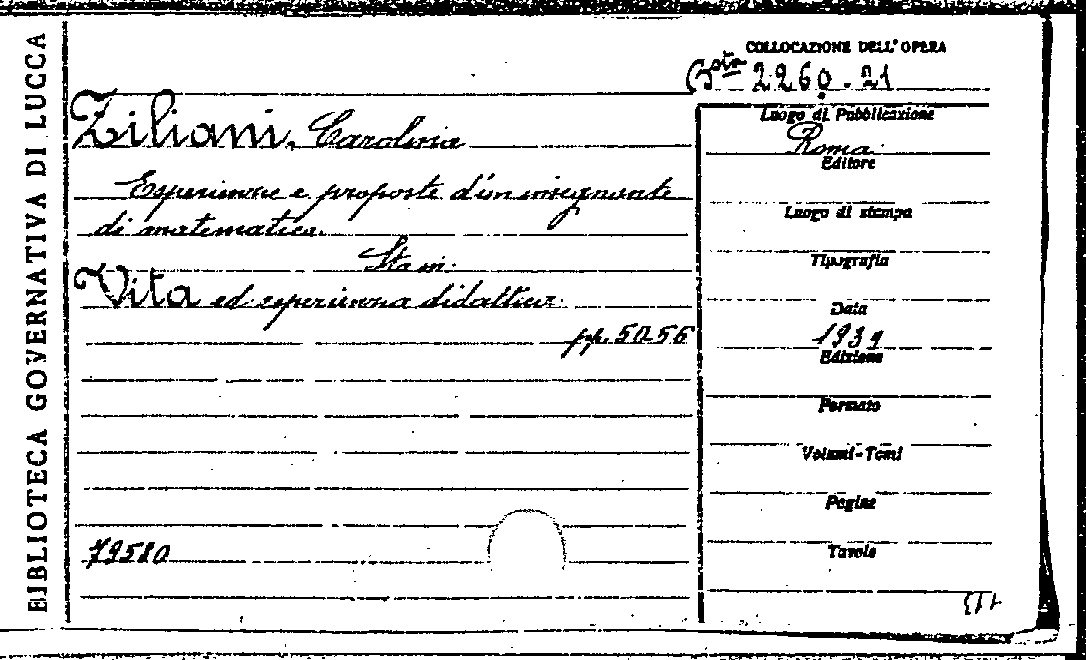 BIBLIOTECA GOVERNATIVA DI LUCCA
COLLOCAZIONE DELL'OPERA
Bsta 2260.21
Ziliani, Carolina
Esperienze e proposte d'un insegnante
di matematica.
Sta in:
Vita ed esperienza didattica.
pp. 50-56
79580
Luogo di Pubblicazione
Roma
Editore
Luogo di stampa
Tipografia
Data
1939
Edizione
Formato
Volumi-Tomi
Pagine
Tavole